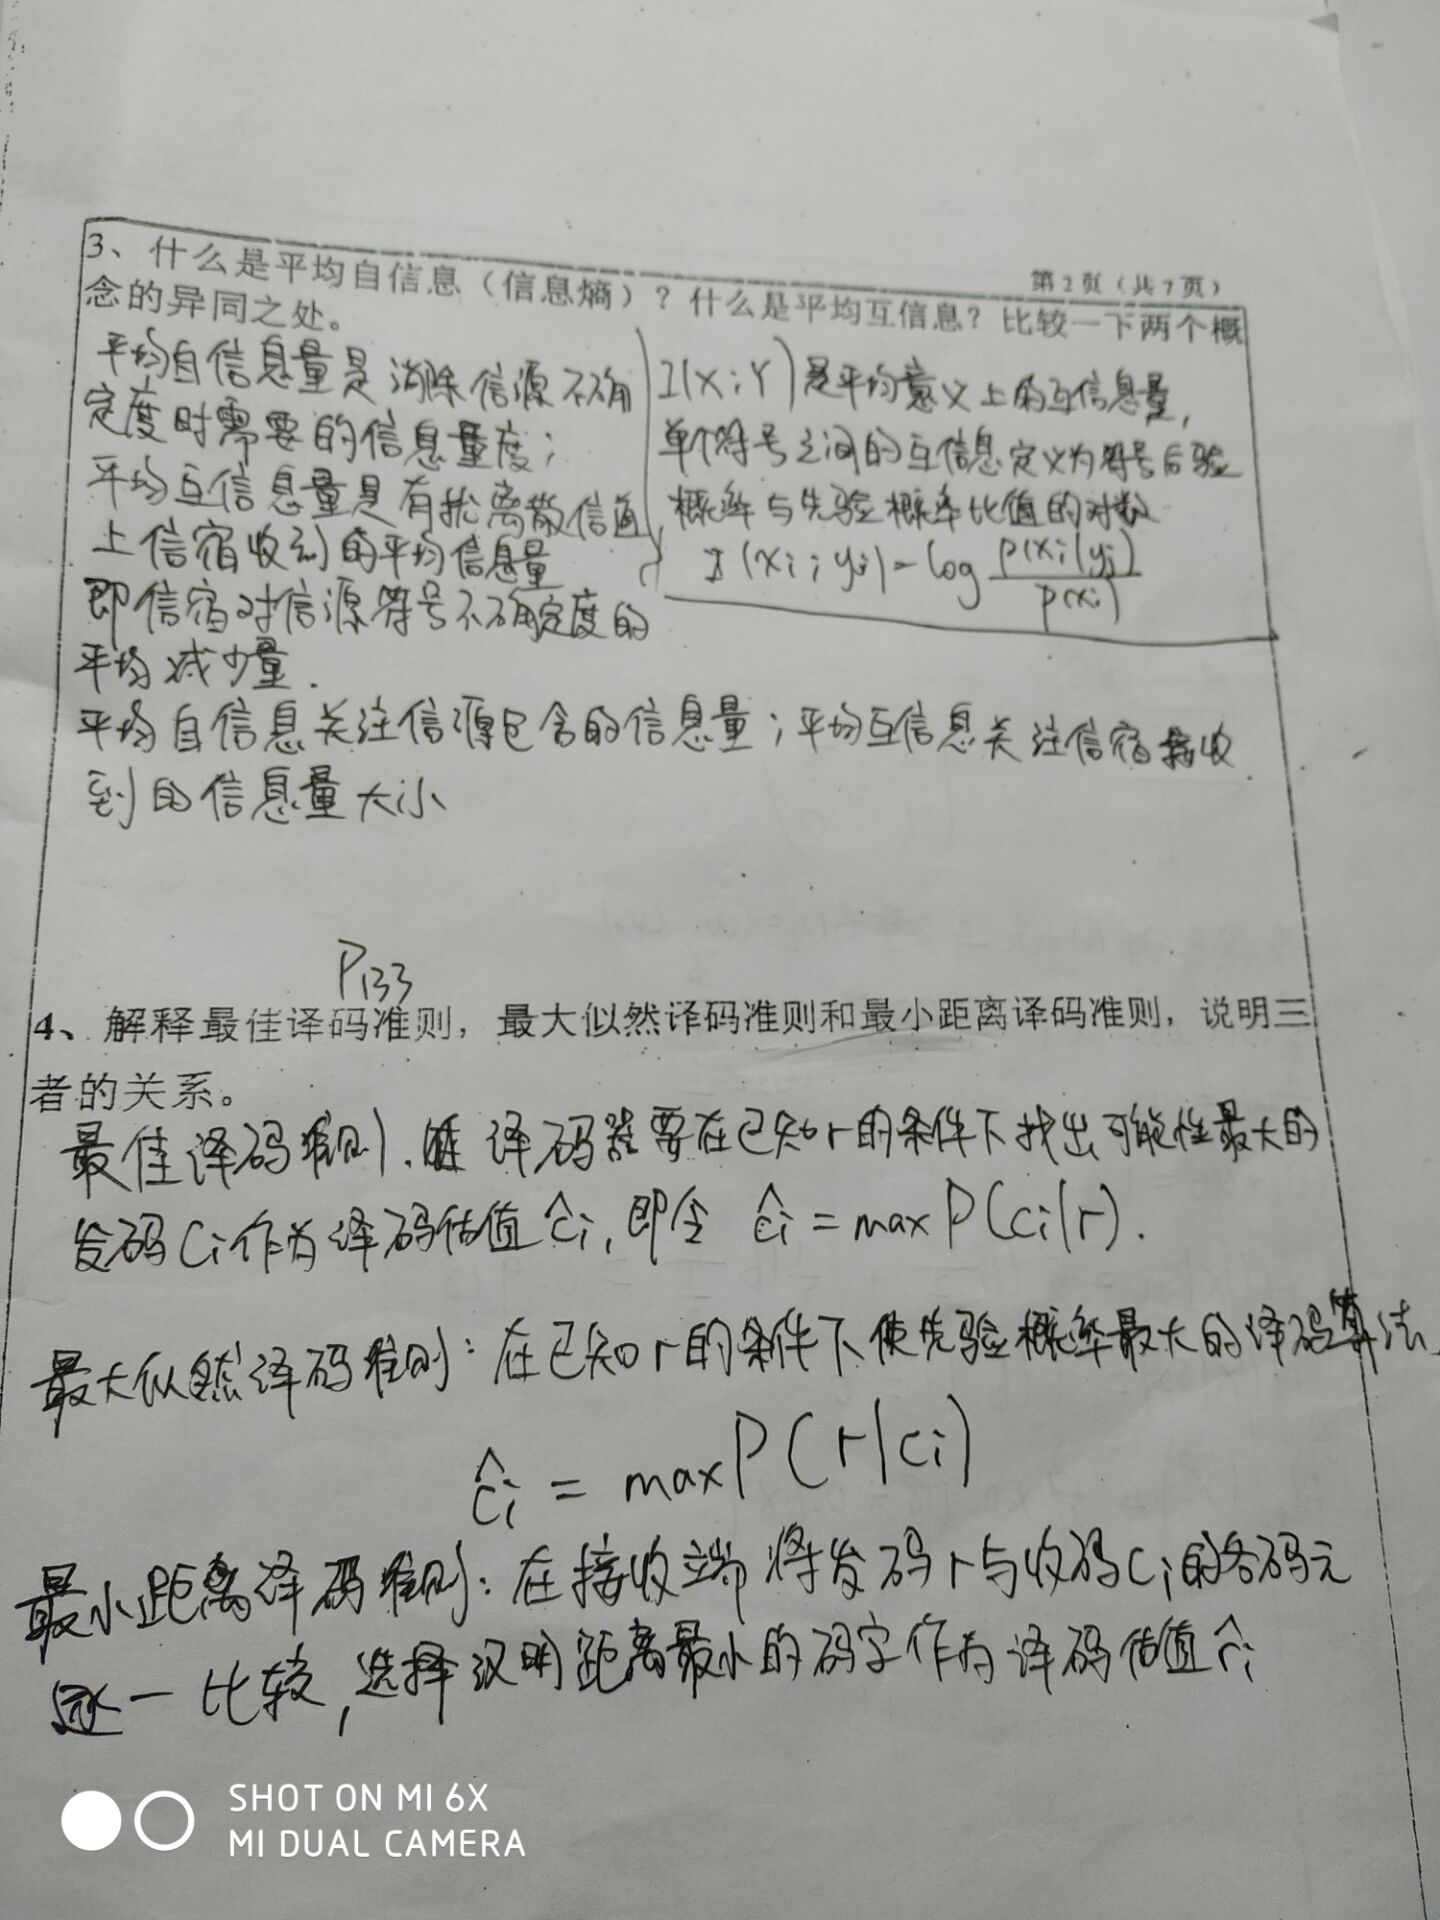 第2页（共7页）
3、什么是平均自信息（信息熵）？什么是平均互信息？比较一下两个概
念的异同之处。
平均自信息量是消除信源不确
定度时需要的信息量度；
平均互信息量是有扰离散信道
上信宿收到的平均信息量
即信宿对信源符号不确定度的
平均减少量.
I(X;Y)是平均意义上的互信息量,
单个符号之间的互信息定义为符号后验
概率与先验概率比值的对数
I(xi;yj)=log p(xi|yj)/p(xi)
平均自信息关注信源包含的信息量；平均互信息关注信宿接收
到的信息量大小
P133
4、解释最佳译码准则，最大似然译码准则和最小距离译码准则，说明三
者的关系。
最佳译码准则. 译码器要在已知r的条件下找出可能性最大的
发码Ci作为译码估值ĉi,即令 ĉi=maxP(ci|r).
最大似然译码准则：在已知r的条件下使先验概率最大的译码算法
ĉi=maxP(r|ci)
最小距离译码准则：在接收端将发码r与收码Ci的各码元
逐一比较,选择汉明距离最小的码字作为译码估值r̂i
SHOT ON MI 6X
MI DUAL CAMERA